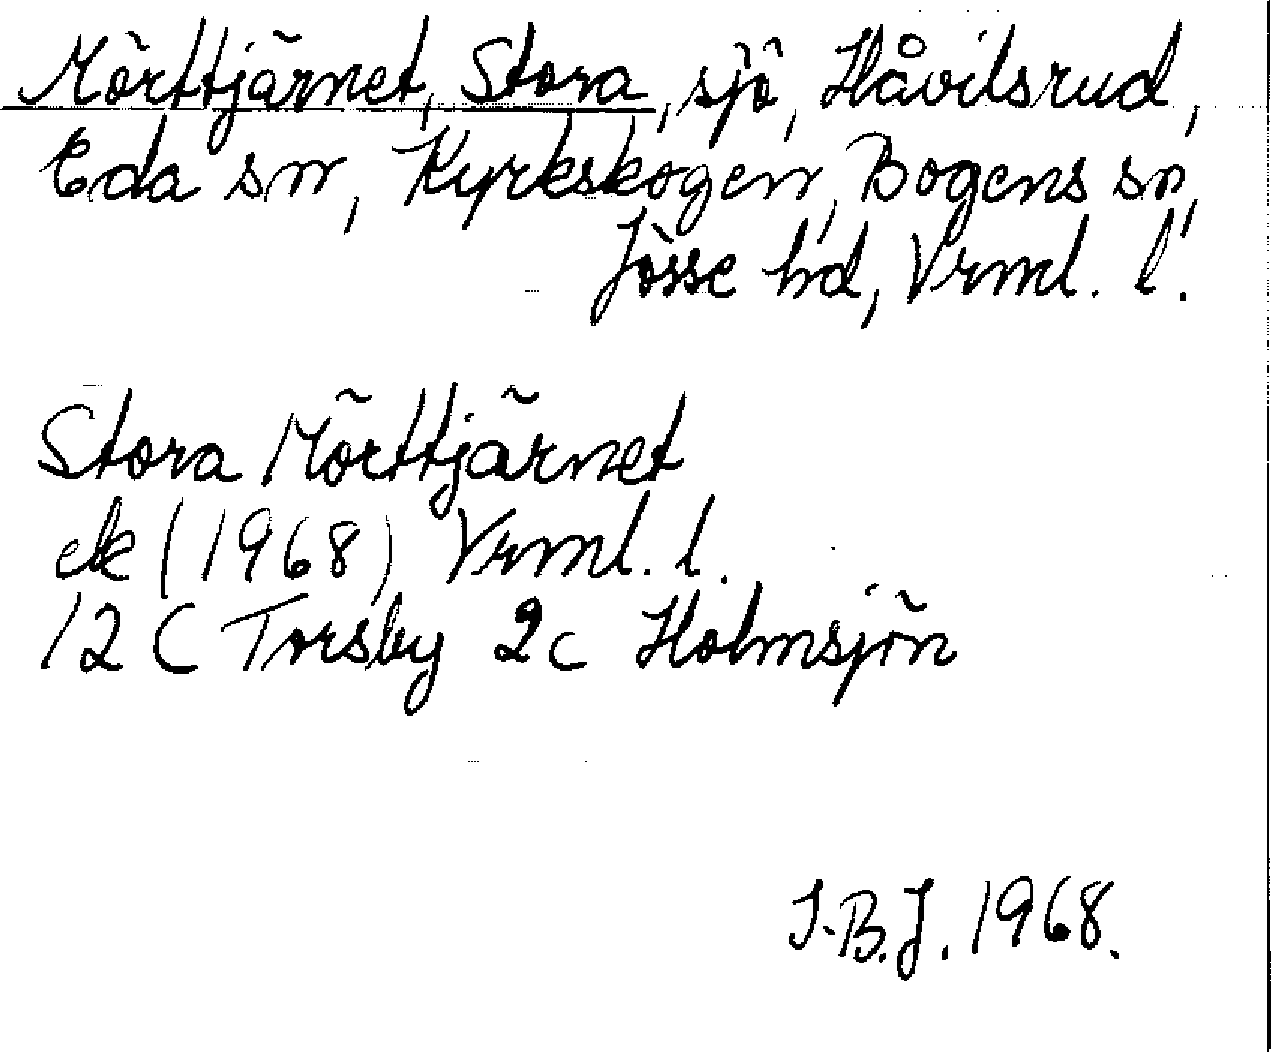 Mörttjärnet, Stora, sjö, Håvilsrud,
Eda sn, Kyrkskogen, Bogens sn,
Jösse hd, Vrml. l.
Stora Mörttjärnet
ek (1968) Vrml. l.
12 C Torsby 2c Holmsjön
I.B.J. 1968.